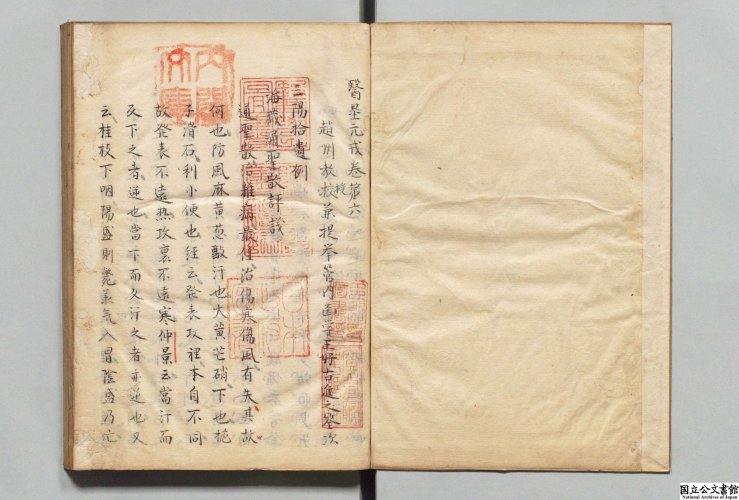 醫壘元戎卷第六
趙州教授兼提举管内醫學王好古進之撰次
三陽拾遺例
海藏通聖散評議
通聖散治雜病最佳治傷寒傷風有失其故
何也防風麻黄葱豉汗也大黄芒硝下也梔
子滑石利小便也經云發表攻裡本自不同
故發表不遠热攻裏不遠寒仲景云當汗而
反下之者逆也當下而反汗之者亦逆也又
云桂枝下咽陽盛則斃承气入胃陰盛乃亡
内閣文庫
国立公文書館
National Archives of Japan